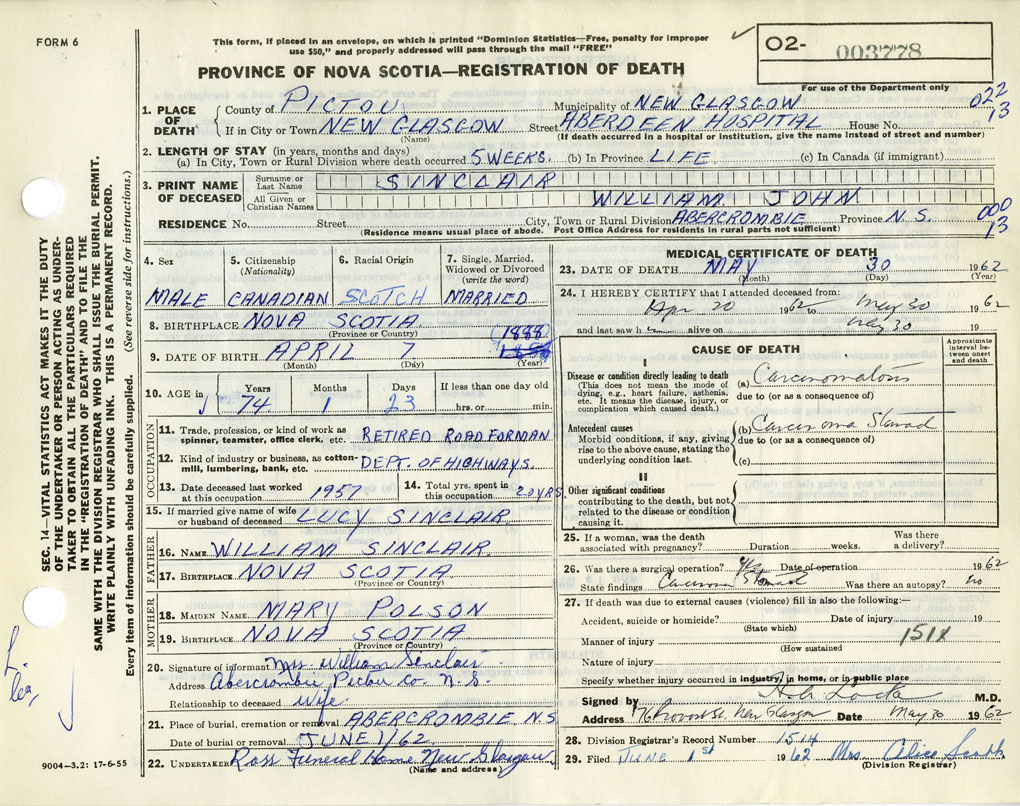 FORM 6
This form, if placed in an envelope, on which is printed "Dominion Statistics—Free, penalty for improper
use $50," and properly addressed will pass through the mail "FREE"
02- 003778
For use of the Department only
PROVINCE OF NOVA SCOTIA—REGISTRATION OF DEATH
1. PLACE OF DEATH County of PICTOU Municipality of NEW GLASGOW 022
If in City or Town NEW GLASGOW Street ABERDEEN HOSPITAL House No. 13
(Name) (If death occurred in a hospital or institution, give the name instead of street and number)
2. LENGTH OF STAY (in years, months and days)
(a) In City, Town or Rural Division where death occurred 5 WEEKS. (b) In Province LIFE (c) In Canada (if immigrant)
3. PRINT NAME OF DECEASED
Surname or Last Name SINCLAIR
All Given or Christian Names WILLIAM JOHN
RESIDENCE No. Street City, Town or Rural Division ABERCROMBIE Province N.S. 000 13
(Residence means usual place of abode. Post Office Address for residents in rural parts not sufficient)
4. Sex MALE
5. Citizenship (Nationality) CANADIAN
6. Racial Origin SCOTCH
7. Single, Married, Widowed or Divorced (write the word) MARRIED
8. BIRTHPLACE NOVA SCOTIA
(Province or Country)
9. DATE OF BIRTH APRIL 7 (1888)
(Month) (Day) (Year)
10. AGE in Years 74 Months 1 Days 23 If less than one day old hrs. or min.
OCCUPATION
11. Trade, profession, or kind of work as spinner, teamster, office clerk, etc. RETIRED ROAD FORMAN
12. Kind of industry or business, as cotton-mill, lumbering, bank, etc. DEPT. OF HIGHWAYS.
13. Date deceased last worked at this occupation 1957
14. Total yrs. spent in this occupation 20 YRS.
15. If married give name of wife or husband of deceased LUCY SINCLAIR.
FATHER
16. NAME WILLIAM SINCLAIR.
17. BIRTHPLACE NOVA SCOTIA
(Province or Country)
MOTHER
18. MAIDEN NAME MARY POLSON
19. BIRTHPLACE NOVA SCOTIA
(Province or Country)
20. Signature of informant Mrs. William Sinclair
Address Abercrombie Pictou Co. N.S.
Relationship to deceased wife
21. Place of burial, cremation or removal ABERCROMBIE N.S
Date of burial or removal JUNE 1/62
22. UNDERTAKER Ross Funeral Home New Glasgow
(Name and address)
9004—3.2: 17-6-55
MEDICAL CERTIFICATE OF DEATH
23. DATE OF DEATH MAY 30 1962
(Month) (Day) (Year)
24. I HEREBY CERTIFY that I attended deceased from:
Apr 20 1962 to May 30 1962
and last saw h alive on May 30 19
CAUSE OF DEATH
Approximate interval between onset and death
I
Disease or condition directly leading to death
(This does not mean the mode of dying, e.g., heart failure, asthenia, etc. It means the disease, injury, or complication which caused death.)
(a) Carcinomatosis
due to (or as a consequence of)
Antecedent causes
Morbid conditions, if any, giving rise to the above cause, stating the underlying condition last.
(b) Carcinoma Stomach
due to (or as a consequence of)
(c)
II
Other significant conditions
contributing to the death, but not related to the disease or condition causing it.
25. If a woman, was the death associated with pregnancy? Duration weeks. Was there a delivery?
26. Was there a surgical operation? Yes Date of operation 1962
State findings Carcinoma Stomach Was there an autopsy? no
27. If death was due to external causes (violence) fill in also the following:—
Accident, suicide or homicide? Date of injury 19
(State which)
Manner of injury 151X
(How sustained)
Nature of injury
Specify whether injury occurred in industry, in home, or in public place
Signed by Locke M.D.
Address Provost St. New Glasgow Date May 30 1962
28. Division Registrar's Record Number 1514
29. Filed June 1st 1962 Mrs. Alice Scott
(Division Registrar)
SEC. 14—VITAL STATISTICS ACT MAKES IT THE DUTY
OF THE UNDERTAKER OR PERSON ACTING AS UNDER-
TAKER TO OBTAIN ALL THE PARTICULARS REQUIRED
IN THE "REGISTRATION OF DEATH" AND TO FILE THE
SAME WITH THE DIVISION REGISTRAR WHO SHALL ISSUE THE BURIAL PERMIT.
WRITE PLAINLY WITH UNFADING INK. THIS IS A PERMANENT RECORD.
Every item of information should be carefully supplied. (See reverse side for instructions.)